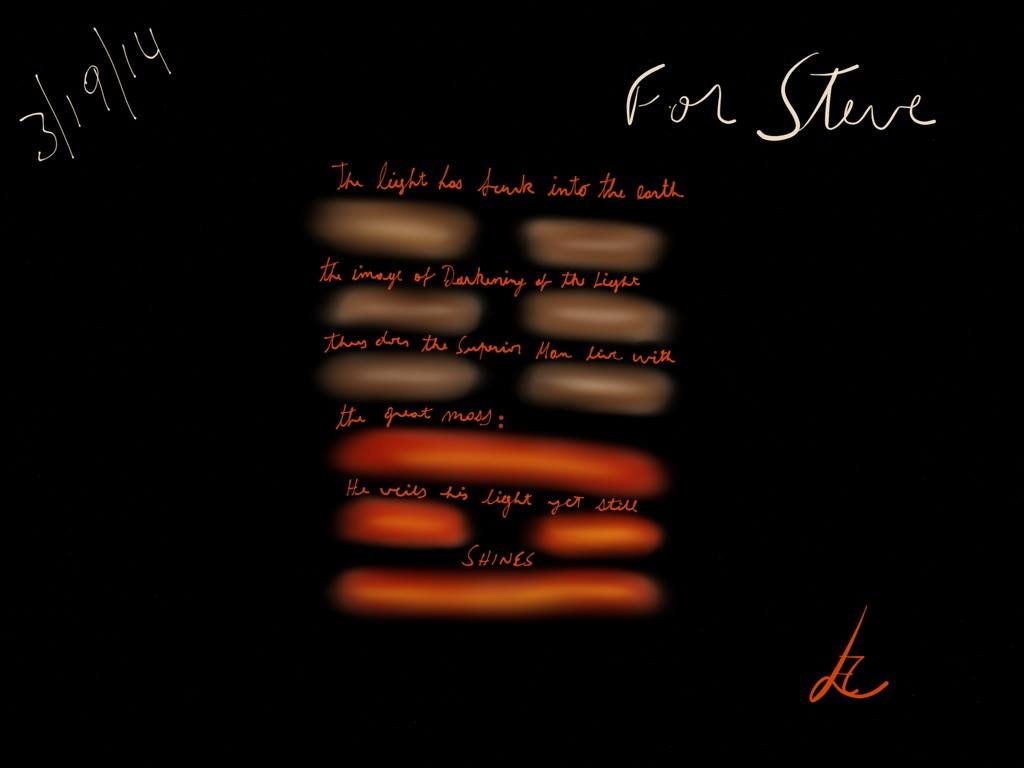 3/19/14
For Steve
The light has sunk into the earth
the image of Darkening of the Light
thus does the Superior Man live with
the great mass:
He veils his light yet still
SHINES